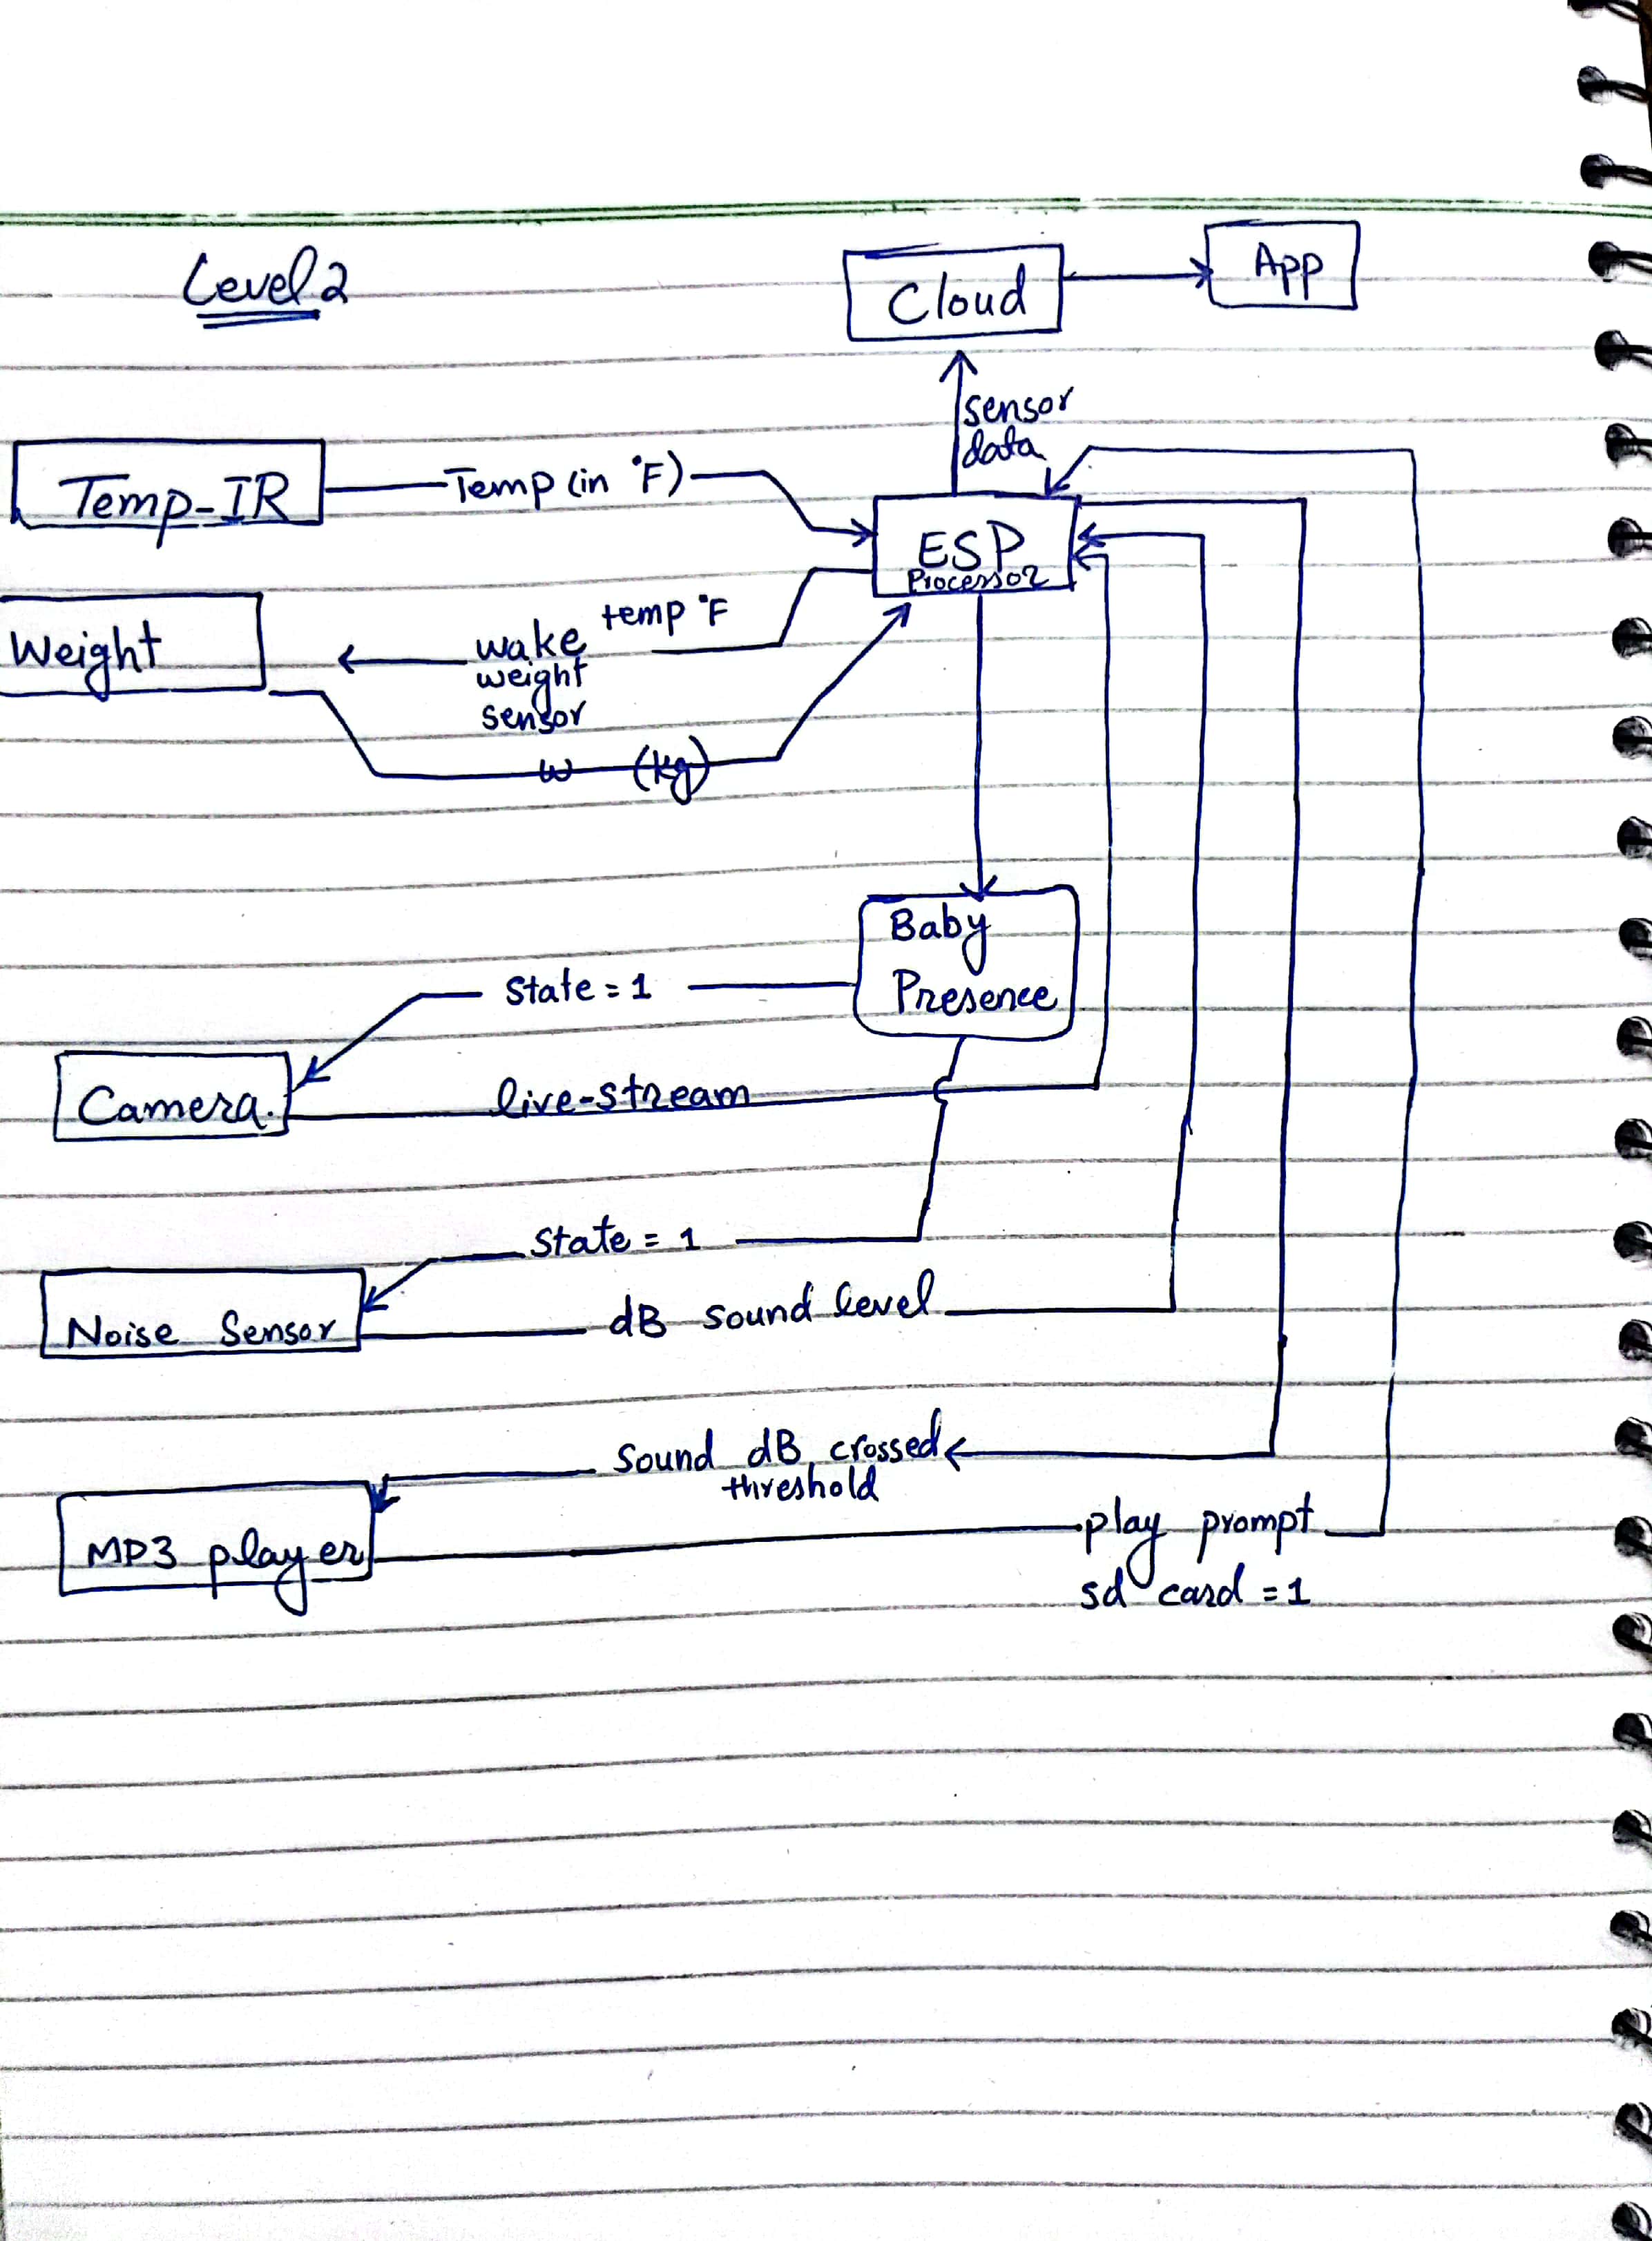 Level 2
Cloud
App
sensor
data
Temp-IR
Temp (in °F)
ESP
Processor
Weight
temp °F
wake
weight
sensor
w (kg)
Baby
Presence
State = 1
Camera.
live-stream
State = 1
Noise Sensor
dB sound level
Sound dB crossed
threshold
MP3 player
play prompt
sd card = 1